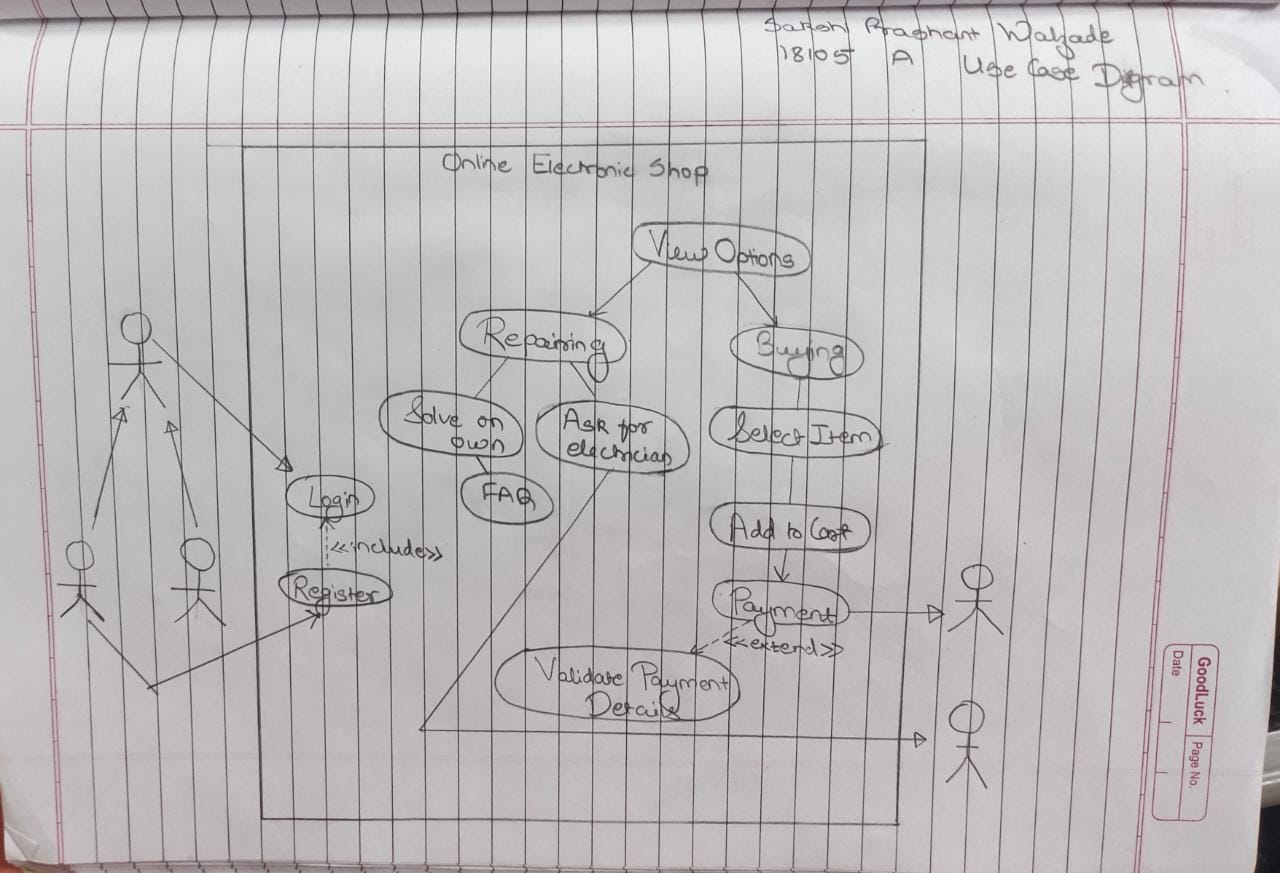 Prashant Walzade
18105 A Use Case Digram
Online Electronic Shop
View Options
Repairing
Buying
Solve on
own
Ask for
electrician
Select Item
Login
FAQ
Add to Cart
<<include>>
Register
Payment
<<extend>>
Validate Payment
Details
GoodLuck
Page No.
Date